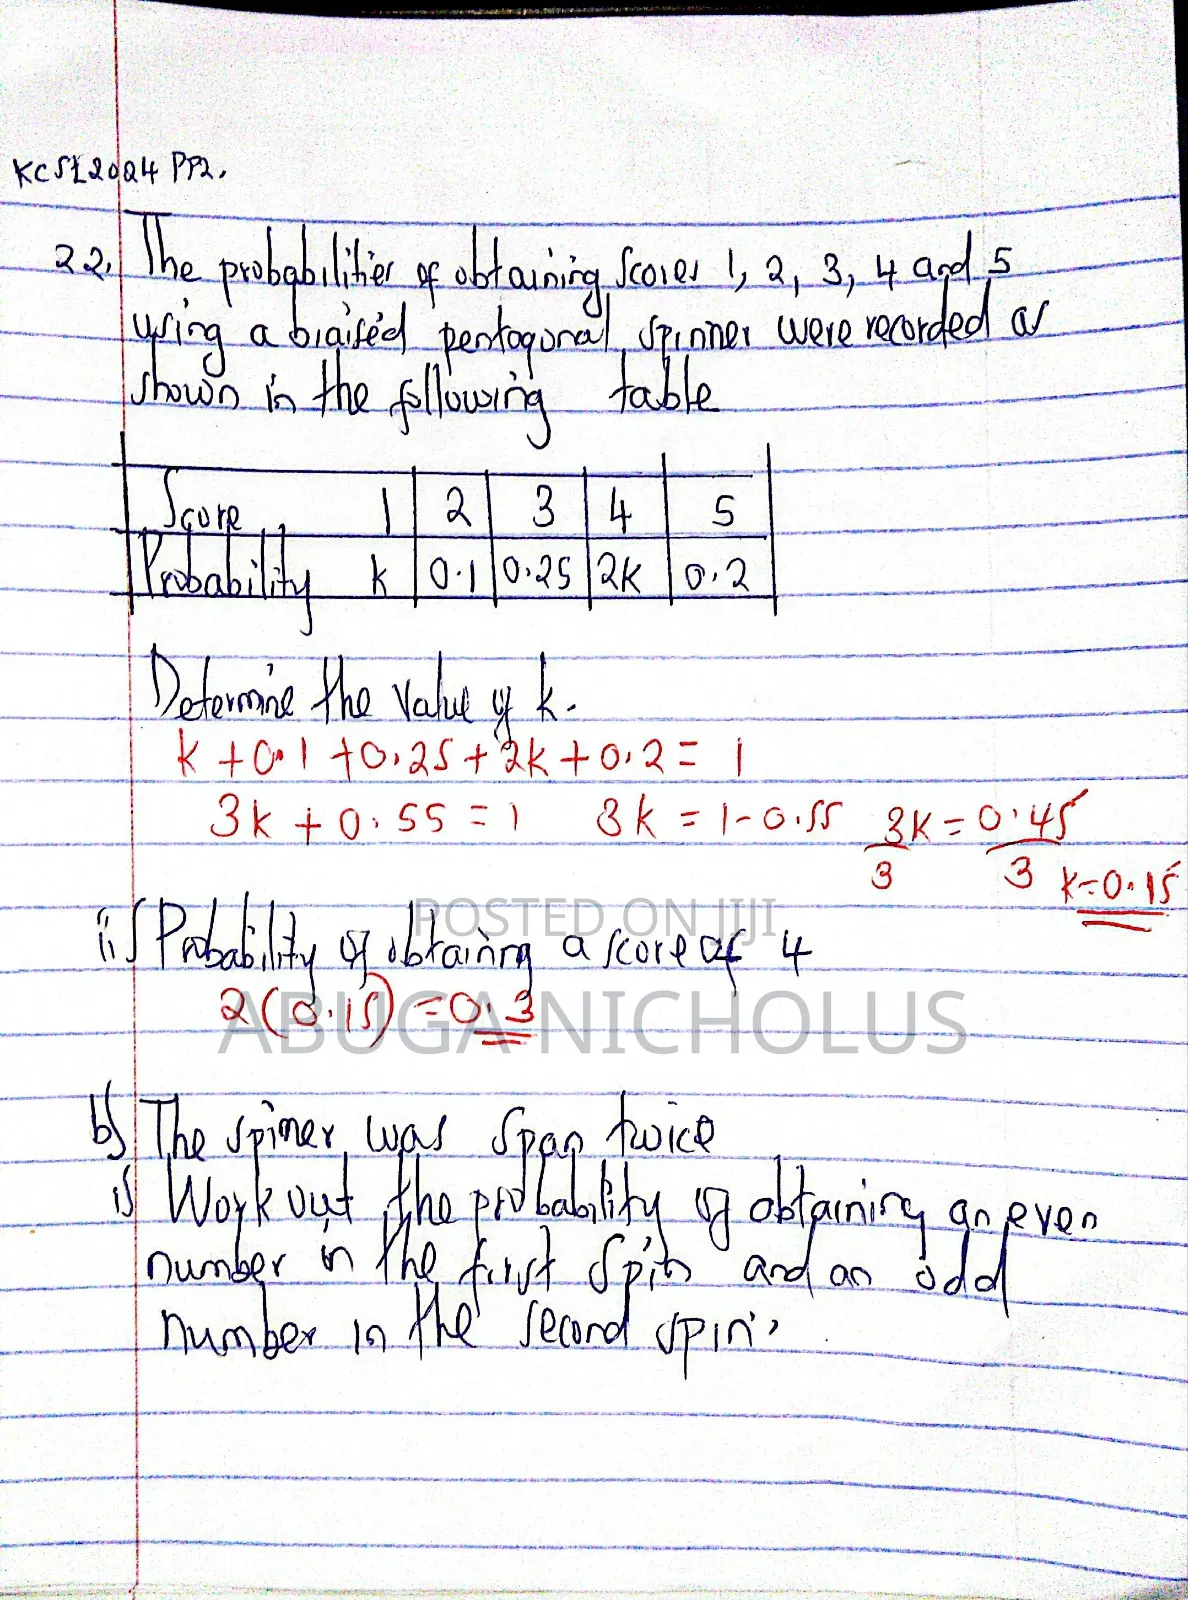 KCSE 2024 PP2.
22. The probabilities of obtaining scores 1, 2, 3, 4 and 5
using a biaised pentagonal spinner were recorded as
shown in the following table
Score 1 2 3 4 5
Probability k 0.1 0.25 2k 0.2
Determine the value of k.
k + 0.1 + 0.25 + 2k + 0.2 = 1
3k + 0.55 = 1 3k = 1 - 0.55 3k = 0.45
3 3 k = 0.15
POSTED ON JIJI
ii) Probability of obtaining a score of 4
2(0.15) = 0.3
ABUGA NICHOLUS
b) The spiner was span twice
i) Work out the probability of obtaining an even
number in the first spin and an odd
number in the second spin.